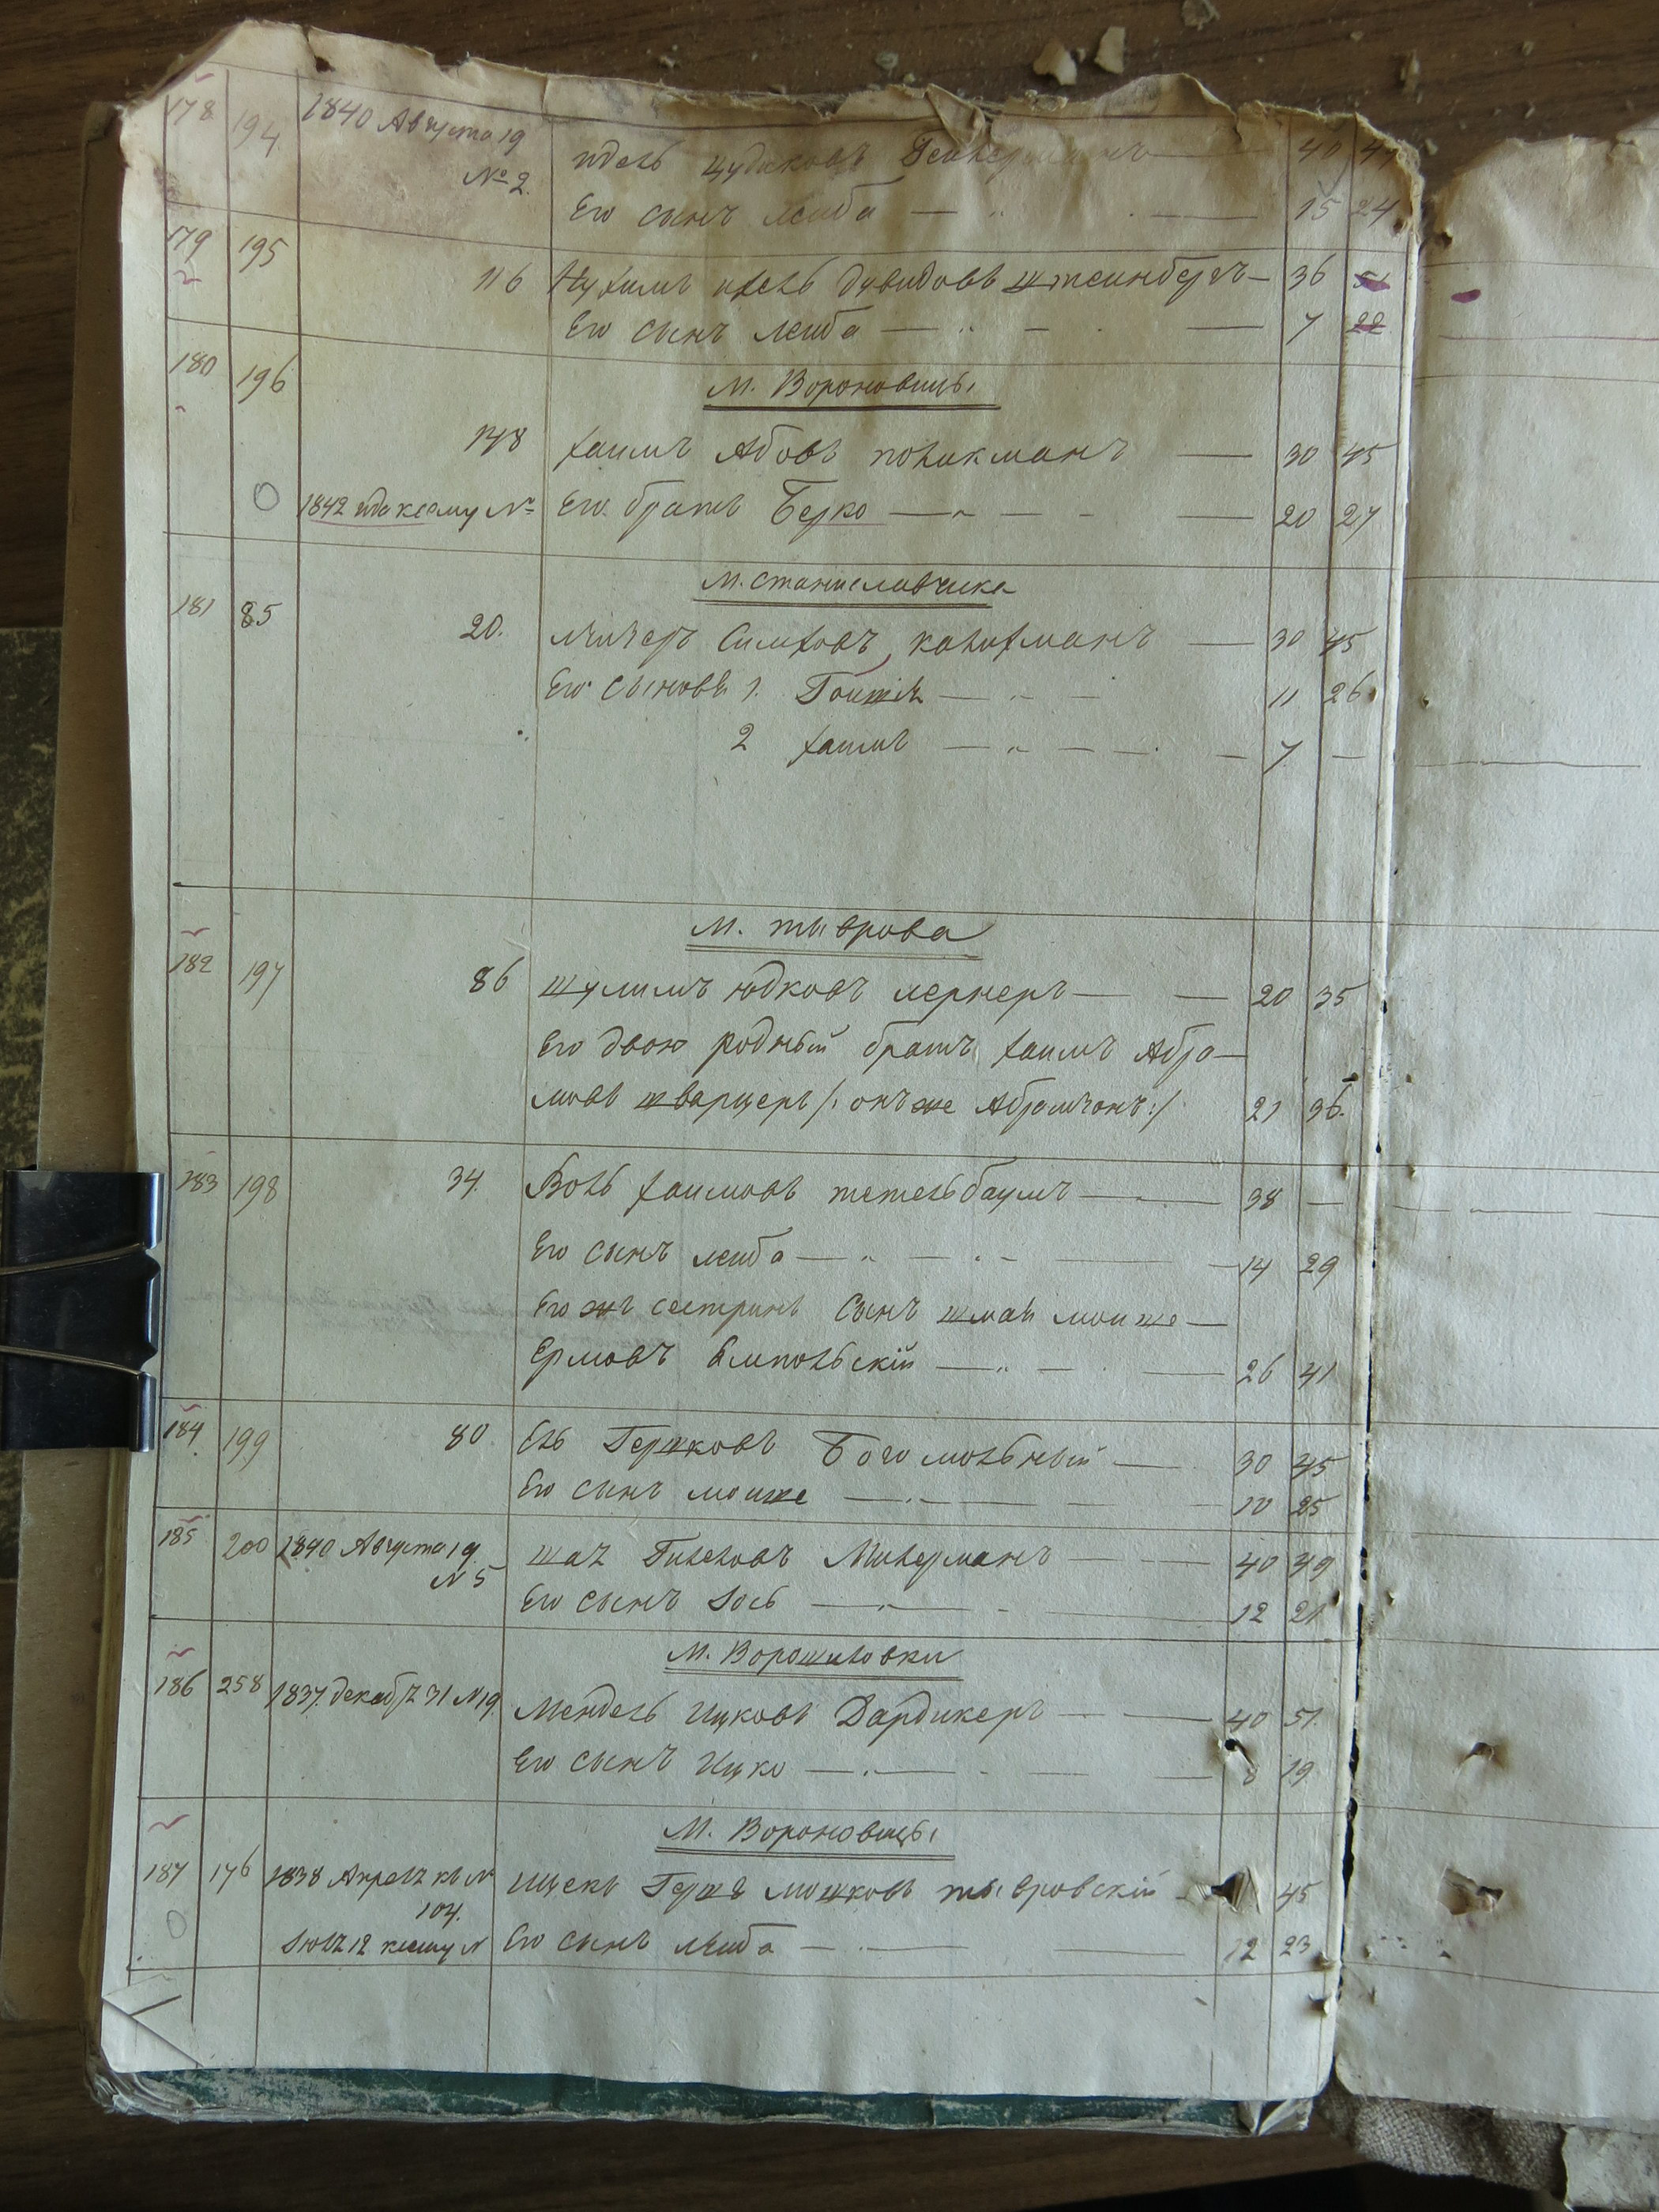 178 194 1840 Августа 19
№ 2. Идель Цудиковъ 40 49
Его сынъ Лейба — 15 24
179 195 116 Нухимъ Ихель Дувидовъ Штеинбергъ — 36 51
Его сынъ Лейба — 7 22
180 196 М. Вороновицы
148 Хаимъ Абовъ Поликманъ — 30 45
1842 года к сему № Его братъ Берко — 20 27
М. Станиславчика
181 85 20. Симховъ Калихманъ — 30 45
Его сыновья 1. — 11 26
2 Хаимъ — 7 —
М. Тыврова
182 197 86 Шулимъ Юдковъ Лернеръ — 20 35
Его двою родный братъ Хаимъ Абра-
мовъ Шварцеръ /: онъ же :/ 21 36.
183 198 34. Воль Хаимовъ Тетельбаумъ — 38 —
Его сынъ Лейба — 14 29
Его жъ сестринъ сынъ Шмаъ Моише
Ермовъ Ямпольскій — 26 41
184 199 80 Ель Гершковъ Богомольный — 30 45
Его сынъ Моише — 10 25
185 200 1840 Августа 19 Шаъ Гилеловъ Милерманъ — 40 49
N 5
Его сынъ Іось — 12 21
М. Ворошиловки
186 258 1837. декабр. 31 N 19. Мендель Ицковъ Дардикеръ — 40 51.
Его сынъ Ицко — 8 19
М. Вороновицы
187 176 1838 Апрель къ N Ицекъ Гершъ Мошковъ Тывровскій 45
104.
Іюль 12 к сему N Его сынъ Лейба — 12 23